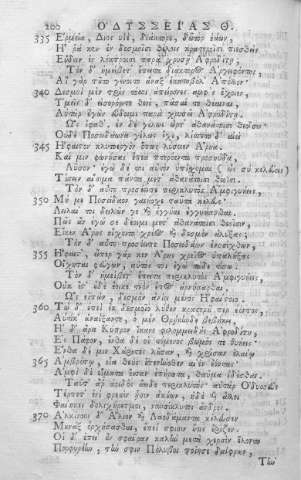 200 ΟΔΥΣΣΕΙΑΣ Θ.
335 Ἑρμεία, Διὸς υἱὲ, διάκτορε, δῶτορ ἐάων,
Ἦ ῥά κεν ἐν δεσμοῖσι
Εὕδειν ἐν λέκτροισι παρὰ χρυσῇ Ἀφροδίτῃ;
Τὸν δ' ἠμείβετ' ἔπειτα διάκτορος Ἀργειφόντης·
Αἲ γὰρ τοῦτο γένοιτο ἄναξ ἑκατηβόλ' Ἄπολλον·
340 Δεσμοὶ μὲν τρὶς τόσοι ἀπείρονες ἀμφὶς ἔχοιεν,
Ὑμεῖς δ' εἰσορόῳτε θεοὶ, πᾶσαί τε θέαιναι,
Αὐτὰρ ἐγὼν εὕδοιμι παρὰ χρυσῇ Ἀφροδίτῃ.
Ὣς ἔφατ', ἐν δὲ γέλως ὦρτ' ἀθανάτοισι θεοῖσιν.
Οὐδὲ Ποσειδάωνα γέλως ἔχε, λίσσετο δ' αἰεὶ
345 Ἥφαιστον κλυτοεργὸν ὅπως λύσειεν Ἄρηα·
Καί μιν φωνήσας ἔπεα πτερόεντα προσηύδα,
Λῦσον· ἐγὼ δέ τοι αὐτὸν ὑπίσχομαι
Τίσειν αἴσιμα πάντα μετ' ἀθανάτοισι θεοῖσι.
Τὸν δ' αὖτε προσέειπε περικλυτὸς Ἀμφιγυήεις,
350 Μή με Ποσείδαον γαιήοχε ταῦτα κέλευε·
Δειλαί τοι δειλῶν γε καὶ ἐγγύαι ἐγγυάασθαι.
Πῶς ἂν ἐγώ σε δέοιμι μετ' ἀθανάτοισι θεοῖσιν,
Εἴ κεν Ἄρης οἴχοιτο χρέος καὶ δεσμὸν ἀλύξας;
Τὸν δ' αὖτε προσέειπε Ποσειδάων ἐνοσίχθων,
355 Ἥφαιστ', εἴπερ γάρ κεν Ἄρης χρεῖος ὑπαλύξας
Οἴχηται φεύγων, αὐτός τοι ἐγὼ τάδε τίσω.
Τὸν δ' ἠμείβετ' ἔπειτα περικλυτὸς Ἀμφιγυήεις,
Οὐκ ἔστ' οὐδὲ ἔοικε τεὸν ἔπος ἀρνήσασθαι.
Ὣς εἰπὼν, δεσμὸν ἀνίει μένος Ἡφαίστοιο.
360 Τὼ δ' ἐπεὶ ἐκ δεσμοῖο λύθεν κρατεροῦ περ ἐόντος,
Αὐτίκ' ἀναΐξαντε, ὁ μὲν Θρῄκηνδε βεβήκει,
Ἡ δ' ἄρα Κύπρον ἵκανε φιλομμειδὴς Ἀφροδίτη,
Ἐς Πάφον, ἔνθα δέ οἱ τέμενος βωμός τε θυήεις·
Ἔνθα δέ μιν Χάριτες λοῦσαν, καὶ χρῖσαν ἐλαίῳ
365 Ἀμβρότῳ, οἷα θεοὺς ἐπενήνοθεν αἰὲν ἐόντας·
Ἀμφὶ δὲ εἵματα ἕσσαν ἐπήρατα, θαῦμα ἰδέσθαι.
Ταῦτ' ἄρ' ἀοιδὸς ἄειδε περικλυτός· αὐτὰρ Ὀδυσσεὺς
Τέρπετ' ἐνὶ φρεσὶν ᾗσιν ἀκούων, ἠδὲ καὶ ἄλλοι
Φαίηκες δολιχήρετμοι, ναυσικλυτοὶ ἄνδρες.
370 Ἀλκίνοος δ' Ἅλιον καὶ Λαοδάμαντα κέλευσεν
Μουνὰξ ὀρχήσασθαι, ἐπεί σφισιν οὔτις ἔριζεν.
Οἱ δ' ἐπεὶ οὖν σφαῖραν καλὴν μετὰ χερσὶν ἕλοντο
Πορφυρέην, τήν σφιν Πόλυβος ποίησε δαΐφρων,
Τὴν